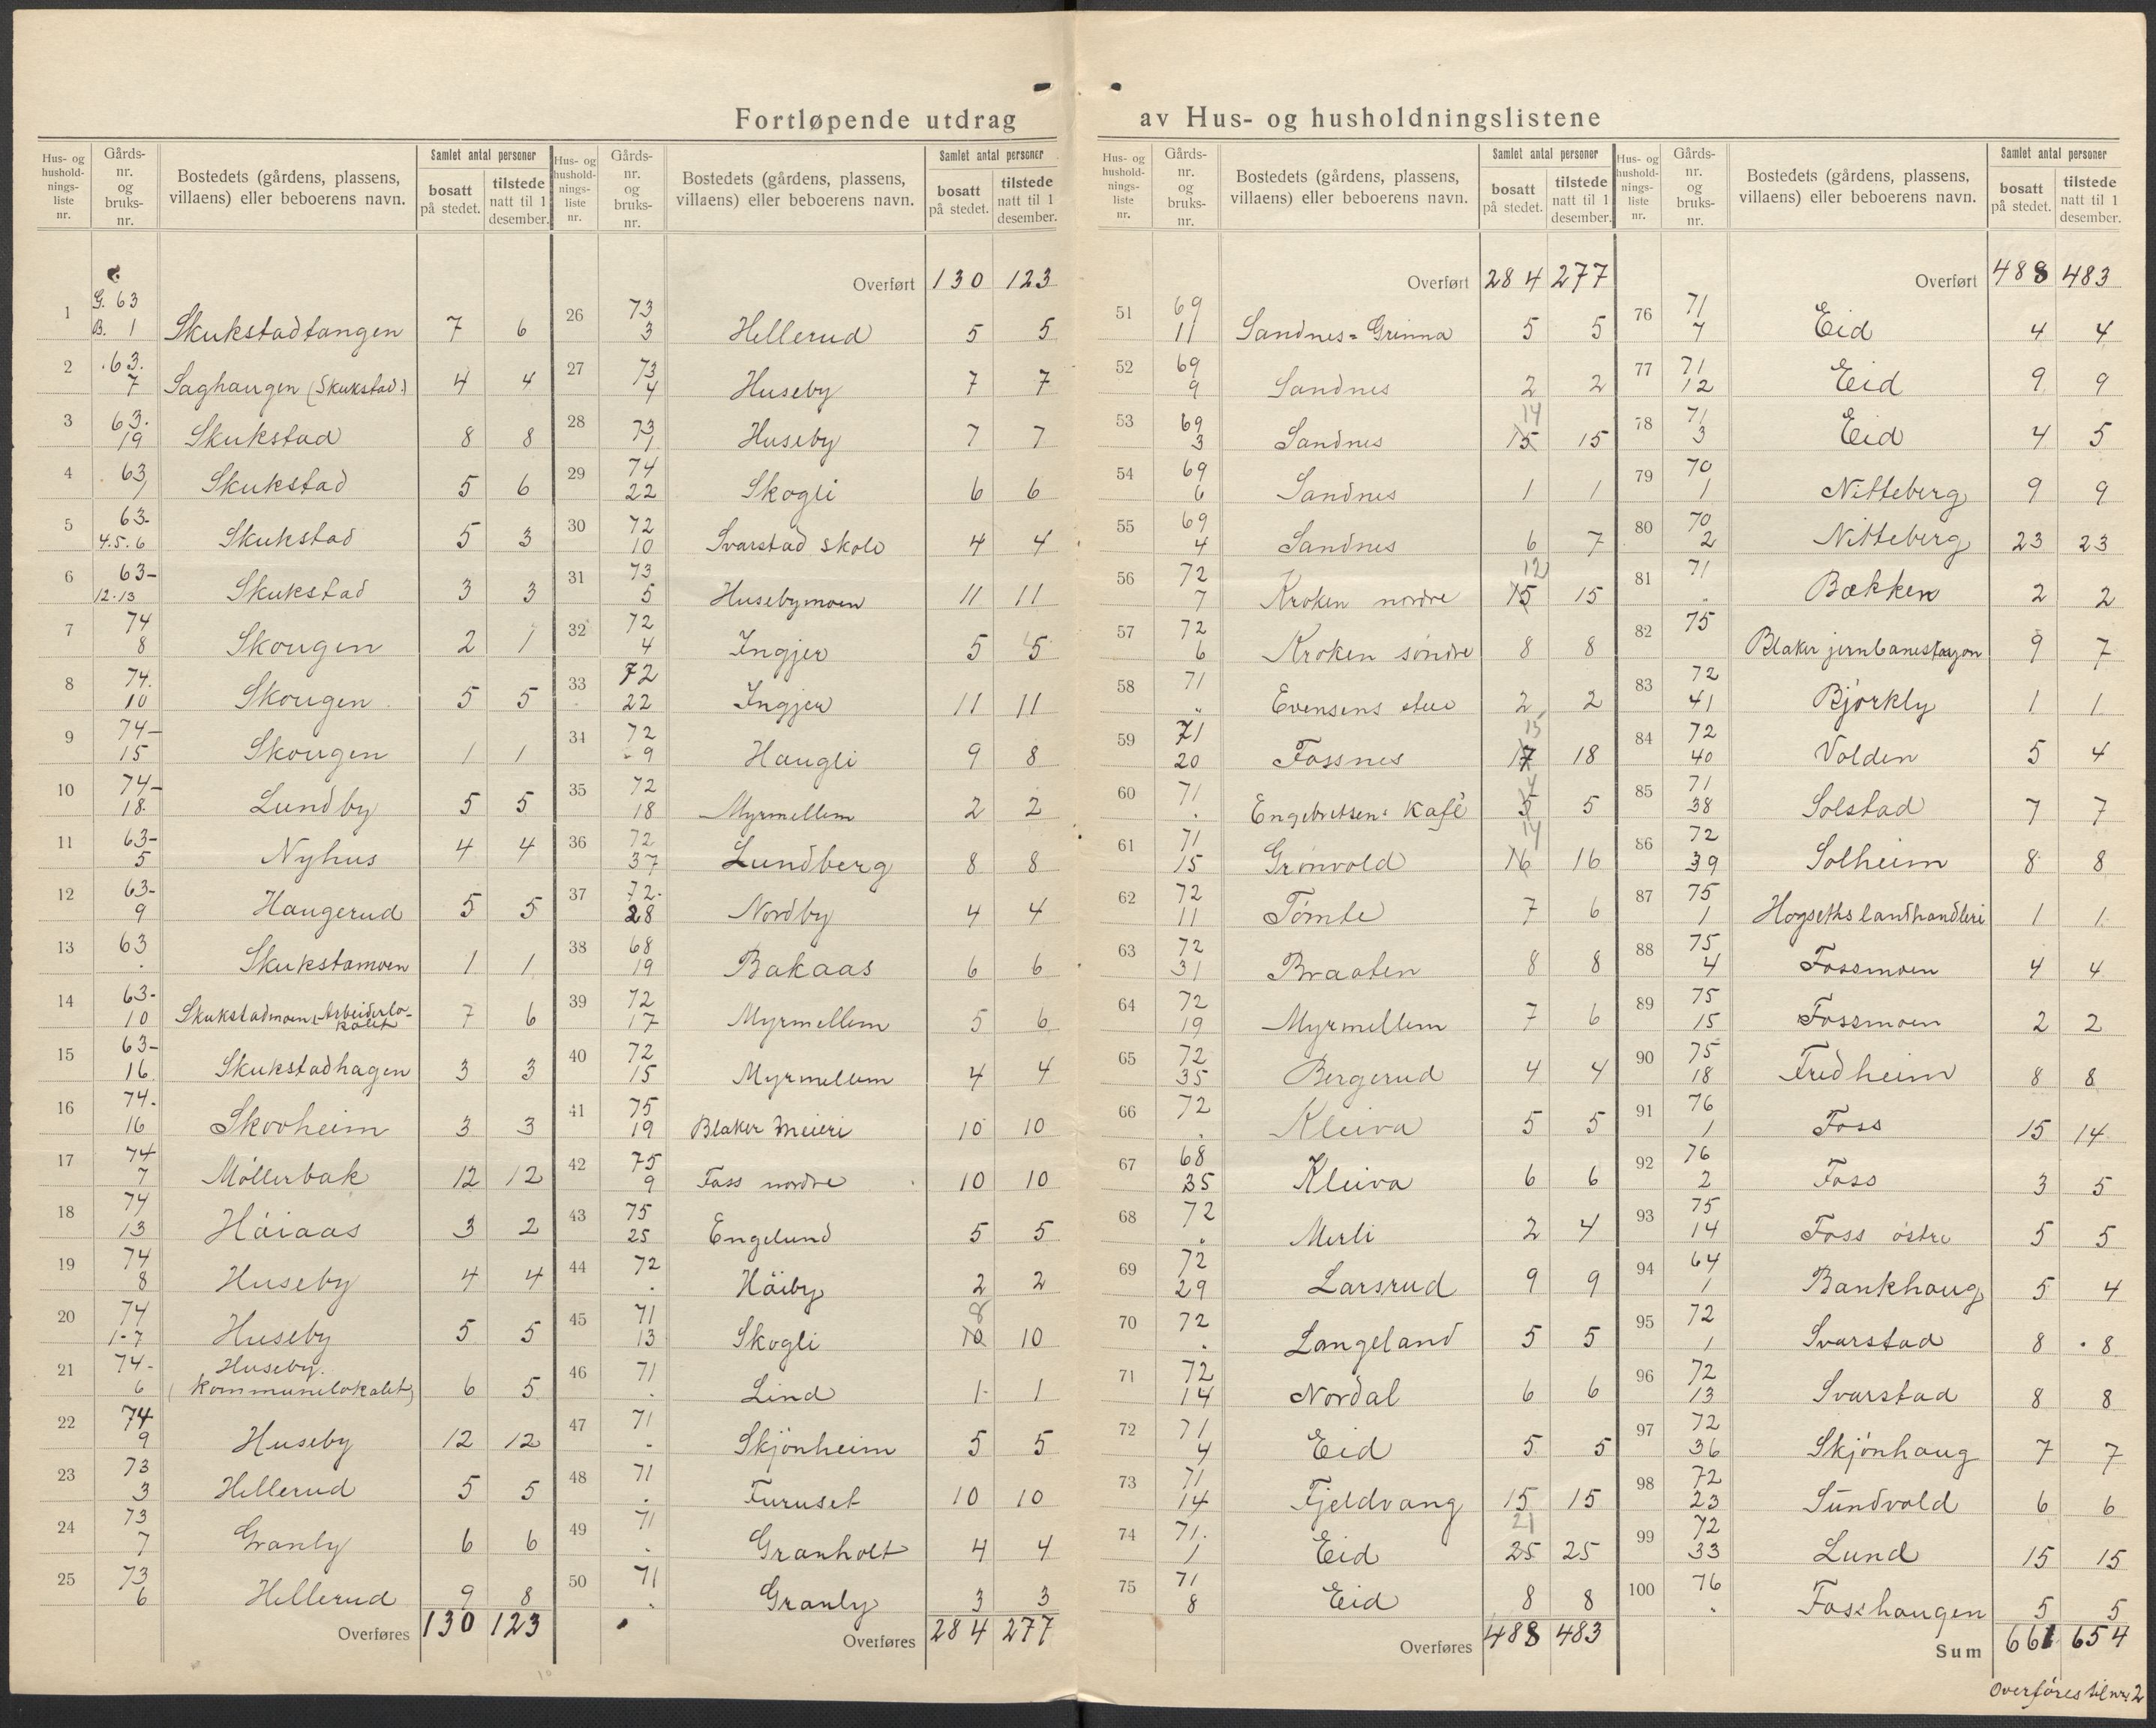 Fortløpende utdrag av Hus- og husholdningslistene
Hus- og husholdnings-liste nr. | Gårds-nr. og bruks-nr. | Bostedets (gårdens, plassens, villaens) eller beboerens navn. | Samlet antal personer | bosatt på stedet. | tilstede natt til 1 desember.
1 G. 63 B. 1 Skukstadtangen 7 6
2 63. 7 Saghaugen (Skukstad) 4 4
3 63. 19 Skukstad 8 8
4 63 1 Skukstad 5 6
5 63- 4.5.6 Skukstad 5 3
6 63- 12-13 Skukstad 3 3
7 74 8 Skougen 2 1
8 74. 10 Skougen 5 5
9 74- 15 Skougen 1 1
10 74- 18. Lundby 5 5
11 63- 5 Nyhus 4 4
12 63- 9 Haugerud 5 5
13 63 . Skukstamoen 1 1
14 63- 10 Skukstadmoen-Arbeiderlo-kalet 7 6
15 63- 16 Skukstadhagen 3 3
16 74. 16 Skovheim 3 3
17 74 7 Möllerbak 12 12
18 74 13 Höiaas 3 2
19 74 8 Huseby 4 4
20 74 1-7 Huseby 5 5
21 74- 6 Huseby. (Kommunelokalet) 6 5
22 74 9 Huseby 12 12
23 73 3 Hellerud 5 5
24 73 7 Granly 6 6
25 73 6 Hellerud 9 8
Overføres 130 123
Hus- og husholdnings-liste nr. | Gårds-nr. og bruks-nr. | Bostedets (gårdens, plassens, villaens) eller beboerens navn. | Samlet antal personer | bosatt på stedet. | tilstede natt til 1 desember.
Overført 130 123
26 73 3 Hellerud 5 5
27 73 4 Huseby 7 7
28 73 1 Huseby 7 7
29 74 22 Skogli 6 6
30 72 10 Svarstad skole 4 4
31 73 5 Husebymoen 11 11
32 72 4 Ingjer 5 5
33 72 22 Ingjer 11 11
34 72 9 Haugli 9 8
35 72 18 Myrmellem 2 2
36 72 37 Lundberg 8 8
37 72- 28 Nordby 4 4
38 68 19 Bakaas 6 6
39 72 17 Myrmellem 5 6
40 72 15 Myrmellem 4 4
41 75 19 Blaker Meieri 10 10
42 75 9 Foss nordre 10 10
43 75 25 Engelund 5 5
44 72 . Höiby 2 2
45 71 13 Skogli 8 10 10
46 71 . Lind 1 1
47 71 - Skjönheim 5 5
48 71 . Furuset 10 10
49 71 . Granholt 4 4
50 71 . Granly 3 3
Overføres 284 277
Hus- og husholdnings-liste nr. | Gårds-nr. og bruks-nr. | Bostedets (gårdens, plassens, villaens) eller beboerens navn. | Samlet antal personer | bosatt på stedet. | tilstede natt til 1 desember.
Overført 284 277
51 69 11 Sandnes=Grinna 5 5
52 69 9 Sandnes 2 2
53 69 3 Sandnes 14 15 15
54 69 6 Sandnes 1 1
55 69 4 Sandnes 6 7
56 72 7 Kroken nordre 12 15 15
57 72 6 Kroken söndre 8 8
58 71 " Evensens stue 2 2
59 71 20 Fossnes 15 17 18
60 71 . Engebretsens Kafé 4 5 5
61 71 15 Grönvold 14 16 16
62 72 11 Tömte 7 6
63 72 31 Braaten 8 8
64 72 19 Myrmellem 7 6
65 72 35 Bergerud 4 4
66 72 . Kleiva 5 5
67 68 35 Kleiva 6 6
68 72 . Merli 2 4
69 72 29 Larsrud 9 9
70 72 . Langeland 5 5
71 72 14 Nordal 6 6
72 71 4 Eid 5 5
73 71 14 Fjeldvang 15 15
74 71. 1 Eid 21 25 25
75 71 8 Eid 8 8
Overføres 488 483
Hus- og husholdnings-liste nr. | Gårds-nr. og bruks-nr. | Bostedets (gårdens, plassens, villaens) eller beboerens navn. | Samlet antal personer | bosatt på stedet. | tilstede natt til 1 desember.
Overført 488 483
76 71 7 Eid 4 4
77 71 12 Eid 9 9
78 71 3 Eid 4 5
79 70 1 Nitteberg 9 9
80 70 2 Nitteberg 23 23
81 71 . Bækken 2 2
82 75 Blaker jernbanestasjon 9 7
83 72 41 Björkly 1 1
84 72 40 Volden 5 4
85 71 38 Solstad 7 7
86 72 39 Solheim 8 8
87 75 1 Hogseths landhandleri 1 1
88 75 4 Fossmoen 4 4
89 75 15 Fossmoen 2 2
90 75 18 Fredheim 8 8
91 76 1 Foss 15 14
92 76 2 Foss 3 5
93 75 14 Foss östre 5 5
94 64 1 Bankhaug 5 4
95 72 1 Svarstad 8 8
96 72 13 Svarstad 8 8
97 72 36 Skjönhaug 7 7
98 72 23 Sundvold 6 6
99 72 33 Lund 15 15
100 76 . Fosshaugen 5 5
Sum 661 654
Overføres til nr. 2